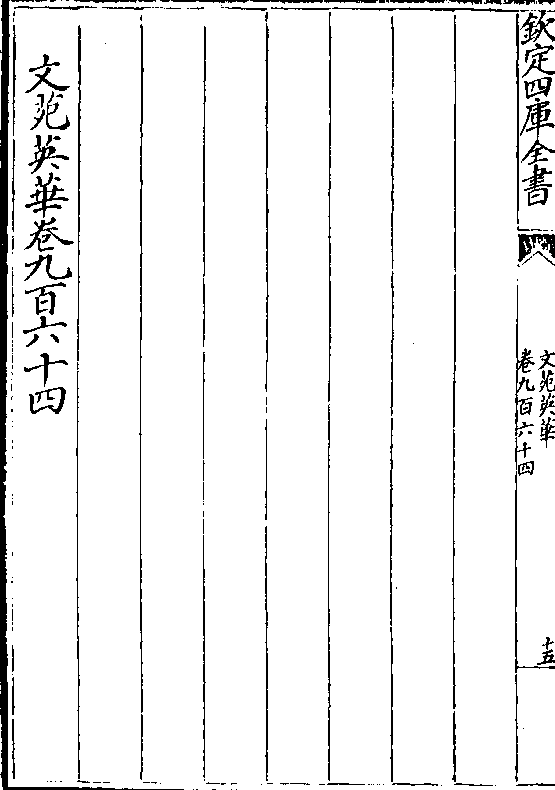 欽定四庫全書
文苑英華
卷九百六十四
十五
文苑英華卷九百六十四